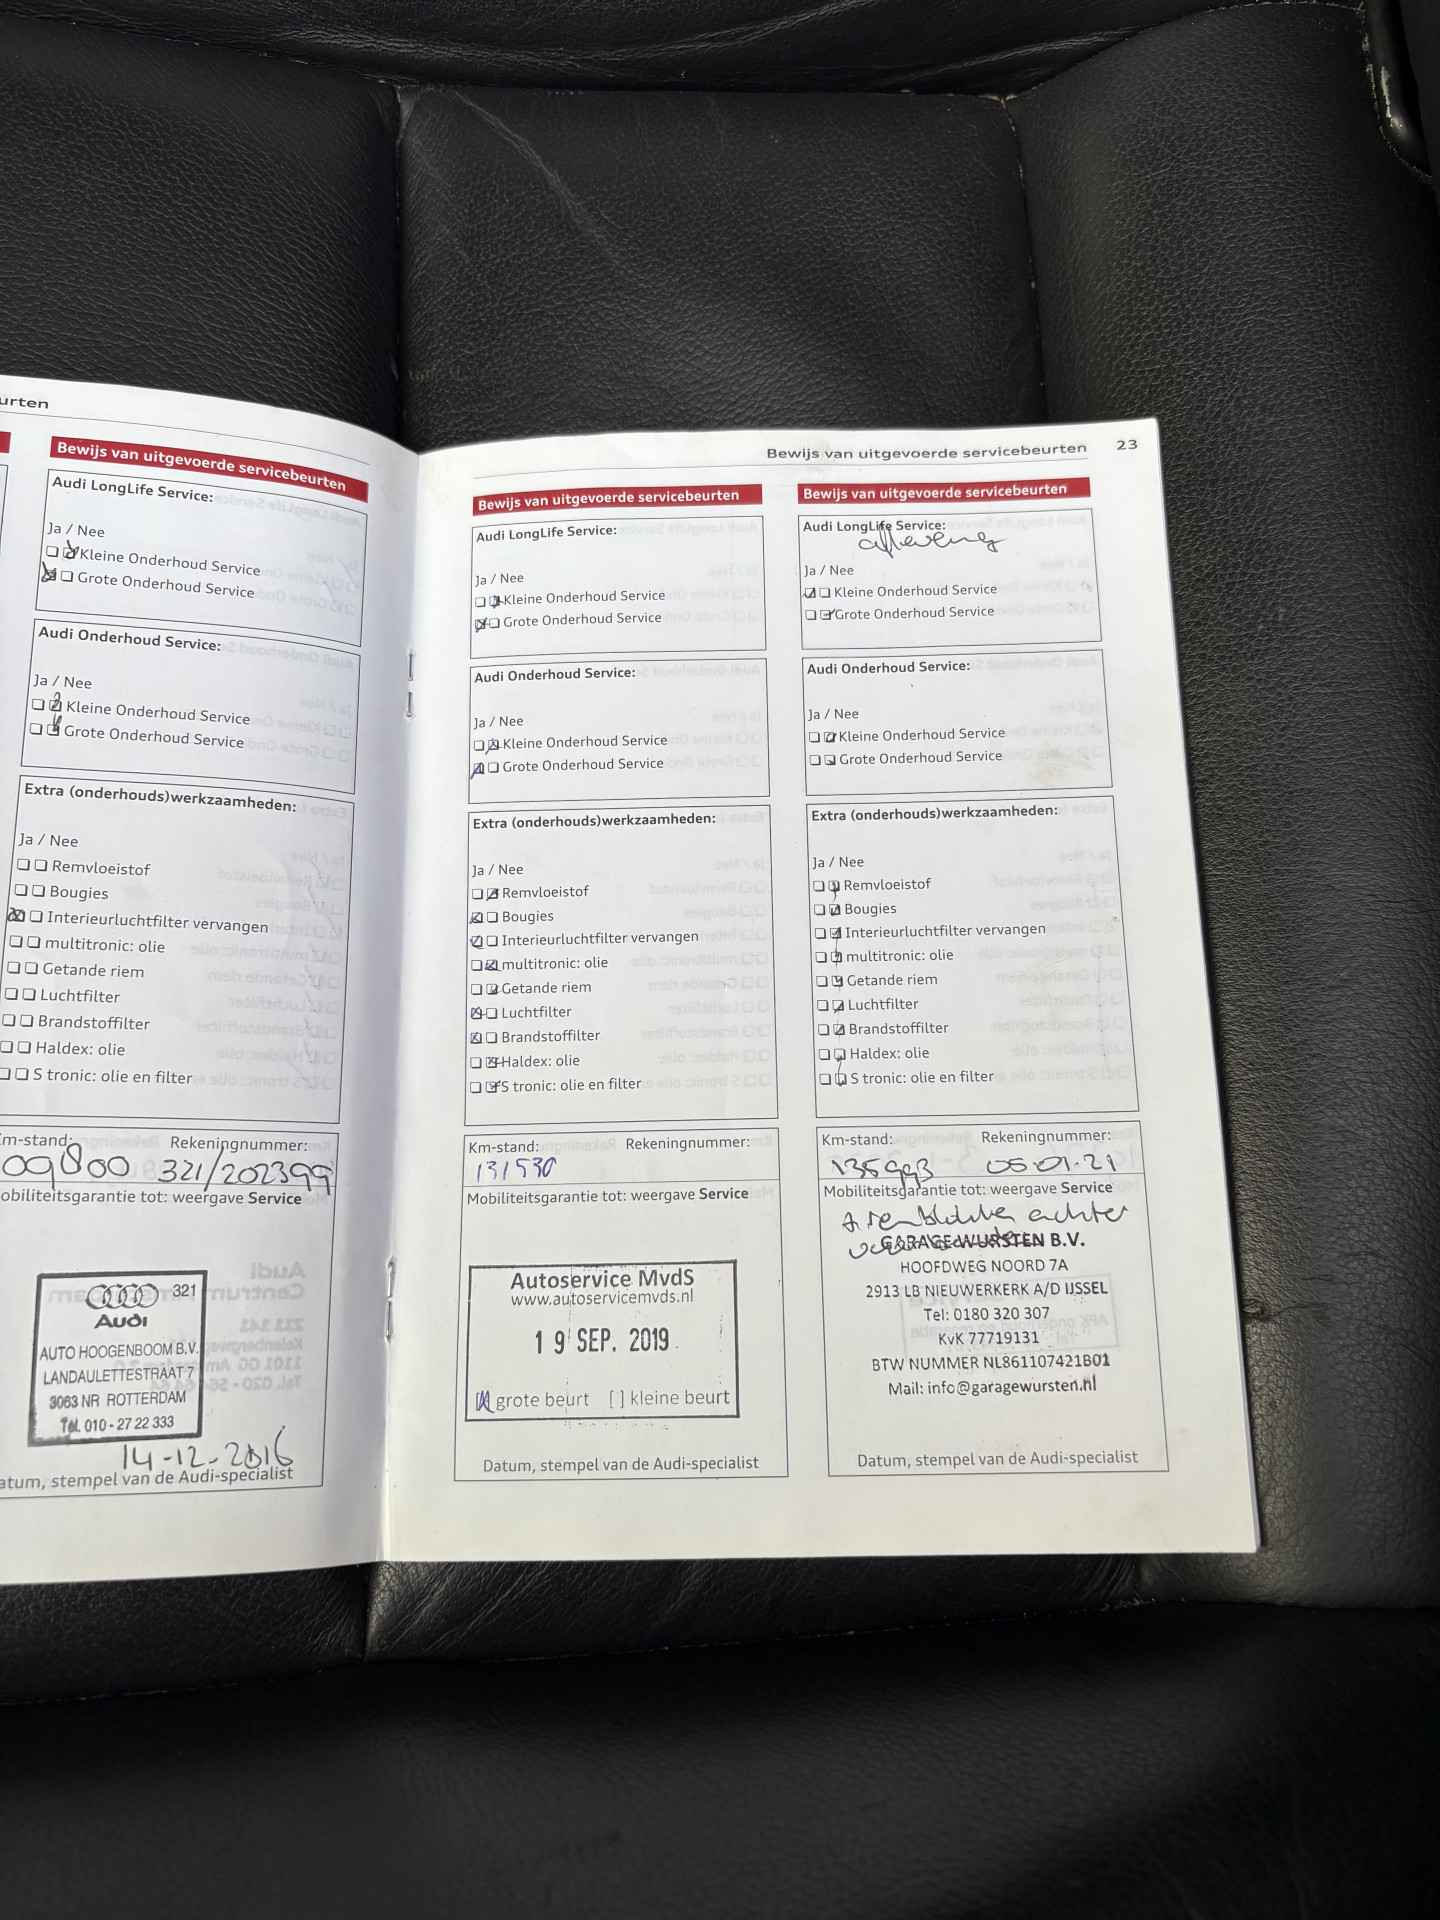 urten
Bewijs van uitgevoerde servicebeurten
Audi LongLife Service:
Ja / Nee
Kleine Onderhoud Service
Grote Onderhoud Service
Audi Onderhoud Service:
Ja / Nee
Kleine Onderhoud Service
Grote Onderhoud Service
Extra (onderhouds)werkzaamheden:
Ja / Nee
Remvloeistof
Bougies
Interieurluchtfilter vervangen
multitronic: olie
Getande riem
Luchtfilter
Brandstoffilter
Haldex: olie
S tronic: olie en filter
Km-stand: Rekeningnummer:
09800 321/202399
obiliteitsgarantie tot: weergave Service
321
Audi
AUTO HOOGENBOOM B.V.
LANDAULETTESTRAAT 7
3063 NR ROTTERDAM
Tel. 010 - 27 22 333
14-12-2016
atum, stempel van de Audi-specialist
Bewijs van uitgevoerde servicebeurten 23
Bewijs van uitgevoerde servicebeurten
Audi LongLife Service:
Ja / Nee
Kleine Onderhoud Service
Grote Onderhoud Service
Audi Onderhoud Service:
Ja / Nee
Kleine Onderhoud Service
Grote Onderhoud Service
Extra (onderhouds)werkzaamheden:
Ja / Nee
Remvloeistof
Bougies
Interieurluchtfilter vervangen
multitronic: olie
Getande riem
Luchtfilter
Brandstoffilter
Haldex: olie
S tronic: olie en filter
Km-stand: Rekeningnummer:
131530
Mobiliteitsgarantie tot: weergave Service
Autoservice MvdS
www.autoservicemvds.nl
19 SEP. 2019
[ ] grote beurt [ ] kleine beurt
Datum, stempel van de Audi-specialist
Bewijs van uitgevoerde servicebeurten
Audi LongLife Service:
aflevering
Ja / Nee
Kleine Onderhoud Service
Grote Onderhoud Service
Audi Onderhoud Service:
Ja / Nee
Kleine Onderhoud Service
Grote Onderhoud Service
Extra (onderhouds)werkzaamheden:
Ja / Nee
Remvloeistof
Bougies
Interieurluchtfilter vervangen
multitronic: olie
Getande riem
Luchtfilter
Brandstoffilter
Haldex: olie
S tronic: olie en filter
Km-stand: Rekeningnummer:
135993 05.01.21
Mobiliteitsgarantie tot: weergave Service
remblokken achter
GARAGE WURSTEN B.V.
HOOFDWEG NOORD 7A
2913 LB NIEUWERKERK A/D IJSSEL
Tel: 0180 320 307
KvK 77719131
BTW NUMMER NL861107421B01
Mail: info@garagewursten.nl
Datum, stempel van de Audi-specialist